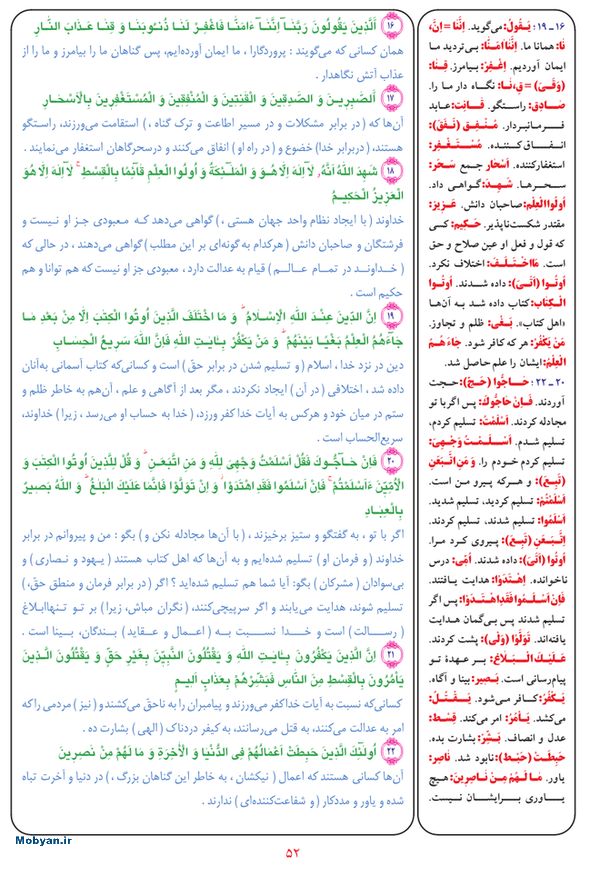 ۱۶ ـ ۱۹ : يَقُولُ: می‌گوید. إِنَّنَا = إِنَّ،
نَا: همانا ما. إِنَّنَا امَنَّا: بی‌تردید ما
ایمان آوردیم. اِغْفِرْ: بیامرز. قِنَا:
(وَقَیَ) = قِ، نَا: نگاه دار ما را.
صَادِق: راستگو. قَانِت: عابد
فرمانبردار. مُنْفِق (نَفَقَ):
انفاق‌کننده. مُسْتَغْفِر:
استغفارکننده. أَسْحَار جمع سَحَر:
سحرها. شَهِدَ: گواهی داد.
أُولُوا الْعِلْمِ: صاحبان دانش. عَزِيز:
مقتدر شکست‌ناپذیر. حَكِيم: کسی
که قول و فعل او عین صلاح و حق
است. مَا اخْتَلَفَ: اختلاف نکرد.
أُوتُوا (أَتَیَ): داده شدند. أُوتُوا
الْكِتَابَ: کتاب داده شد به آن‌ها
«اهل کتاب». بَغْی: ظلم و تجاوز.
مَنْ يَكْفُرْ: هر که کافر شود. جَاءَهُمُ
الْعِلْمُ: ایشان را علم حاصل شد.
۲۰ ـ ۲۲ : حَاجُّوا (حَجَّ): حجت
آوردند. فَإِنْ حَاجُّوكَ: پس اگر با تو
مجادله کردند. أَسْلَمْتُ: تسلیم کردم،
تسلیم شدم. أَسْلَمْتُ وَجْهِیَ:
تسلیم کردم خودم را. وَ مَنِ اتَّبَعَنِ
(تَبِعَ): و هرکه پیرو من است.
أَسْلَمْتُمْ: تسلیم کردید، تسلیم شدید.
أَسْلَمُوا: تسلیم شدند، تسلیم کردند.
اِتَّبَعَنِ (تَبِعَ): پیروی کرد مرا.
أُوتُوا (أَتَیَ): داده شدند. أُمِّی: درس
ناخوانده. اِهْتَدَوْا: هدایت یافتند.
فَإِنْ أَسْلَمُوا فَقَدِ اهْتَدَوْا: پس اگر
تسلیم شدند پس بی‌گمان هدایت
یافته‌اند. تَوَلَّوْا (وَلِیَ): پشت کردند.
عَلَيْكَ الْبَلَاغُ: بر عهدهٔ تو
پیام‌رسانی است. بَصِير: بینا و آگاه.
يَكْفُرُ: کافر می‌شود. يَقْتُلُ:
می‌کشد. يَأْمُرُ: امر می‌کند. قِسْط:
عدل و انصاف. بَشِّرْ: بشارت بده.
حَبِطَتْ (حَبِطَ): نابود شد. نَاصِر:
یاور. مَا لَهُمْ مِنْ نَاصِرِينَ: هیچ
یاوری برایشان نیست.
۱۶ اَلَّذِينَ يَقُولُونَ رَبَّنَا إِنَّنَا ءَامَنَّا فَاغْفِرْ لَنَا ذُنُوبَنَا وَ قِنَا عَذَابَ النَّارِ
همان کسانی که می‌گویند : پروردگارا ، ما ایمان آورده‌ایم، پس گناهان ما را بیامرز و ما را از
عذاب آتش نگاهدار .
۱۷ اَلصَّبِرِينَ وَ الصَّدِقِينَ وَ الْقَنِتِينَ وَ الْمُنْفِقِينَ وَ الْمُسْتَغْفِرِينَ بِالْأَسْحَارِ
آن‌ها که ( در برابر مشکلات و در مسیر اطاعت و ترک گناه ، ) استقامت می‌ورزند، راستگو
هستند، ( دربرابر خدا) خضوع و ( در راه او ) انفاق می‌کنند و درسحرگاهان استغفار می‌نمایند .
۱۸ شَهِدَ اللهُ أَنَّهُ لَا إِلَهَ إِلَّا هُوَ وَ الْمَلَئِكَةُ وَ أُولُوا الْعِلْمِ قَائِمًا بِالْقِسْطِ ۚ لَا إِلَهَ إِلَّا هُوَ
الْعَزِيزُ الْحَكِيمُ
خداوند ( با ایجاد نظام واحد جهان هستی ، ) گواهی می‌دهد که معبودی جز او نیست و
فرشتگان و صاحبان دانش ( هرکدام به گونه‌ای بر این مطلب ) گواهی می‌دهند ، در حالی که
( خداوند در تمام عالم ) قیام به عدالت دارد ، معبودی جز او نیست که هم توانا و هم
حکیم است .
۱۹ إِنَّ الدِّينَ عِنْدَ اللهِ الْإِسْلَامُ ۗ وَ مَا اخْتَلَفَ الَّذِينَ أُوتُوا الْكِتَبَ إِلَّا مِنْ بَعْدِ مَا
جَاءَهُمُ الْعِلْمُ بَغْيًا بَيْنَهُمْ ۗ وَ مَنْ يَكْفُرْ بِـَايَتِ اللهِ فَإِنَّ اللهَ سَرِيعُ الْحِسَابِ
دین در نزد خدا ، اسلام ( و تسلیم شدن در برابر حقّ ) است و کسانی‌که کتاب آسمانی به‌آنان
داده شد ، اختلافی ( در آن ) ایجاد نکردند ، مگر بعد از آگاهی و علم ، آن‌هم به خاطر ظلم و
ستم در میان خود و هرکس به آیات خدا کفر ورزد، ( خدا به حساب او می‌رسد ، زیرا ) خداوند،
سریع‌الحساب است .
۲۰ فَإِنْ حَاجُّوكَ فَقُلْ أَسْلَمْتُ وَجْهِيَ لِلَّهِ وَ مَنِ اتَّبَعَنِ ۗ وَ قُلْ لِلَّذِينَ أُوتُوا الْكِتَبَ وَ
الْأُمِّيِّنَ ءَأَسْلَمْتُمْ ۚ فَإِنْ أَسْلَمُوا فَقَدِ اهْتَدَوْا ۖ وَ إِنْ تَوَلَّوْا فَإِنَّمَا عَلَيْكَ الْبَلَغُ ۗ وَ اللهُ بَصِيرٌ
بِالْعِبَادِ
اگر با تو ، به گفتگو و ستیز برخیزند ، ( با آن‌ها مجادله نکن و ) بگو : من و پیروانم در برابر
خداوند ( و فرمان او ) تسلیم شده‌ایم و به آن‌ها که اهل کتاب هستند ( یهود و نصاری ) و
بی‌سوادان ( مشرکان ) بگو: آیا شما هم تسلیم شده‌اید ؟ اگر ( در برابر فرمان و منطق حق، )
تسلیم شوند، هدایت می‌یابند و اگر سرپیچی‌کنند، ( نگران مباش، زیرا ) بر تو تنها‌ابلاغ
( رسالت ) است و خدا نسبت به ( اعمال و عقاید ) بندگان، بینا است .
۲۱ إِنَّ الَّذِينَ يَكْفُرُونَ بِـَايَتِ اللهِ وَ يَقْتُلُونَ النَّبِيِّنَ بِغَيْرِ حَقٍّ وَ يَقْتُلُونَ الَّذِينَ
يَأْمُرُونَ بِالْقِسْطِ مِنَ النَّاسِ فَبَشِّرْهُمْ بِعَذَابٍ أَلِيمٍ
کسانی‌که نسبت به آیات خدا کفر می‌ورزند و پیامبران را به ناحق می‌کشند و ( نیز ) مردمی را که
امر به عدالت می‌کنند، به قتل می‌رسانند، به کیفر دردناک ( الهی ) بشارت ده .
۲۲ أُولَئِكَ الَّذِينَ حَبِطَتْ أَعْمَالُهُمْ فِى الدُّنْيَا وَ الْأَخِرَةِ وَ مَا لَهُمْ مِنْ نَصِرِينَ
آن‌ها کسانی هستند که اعمال ( نیکشان ، به خاطر این گناهان بزرگ ، ) در دنیا و آخرت تباه
شده و یاور و مددکار ( و شفاعت‌کننده‌ای ) ندارند .
Mobyan.ir
۵۲